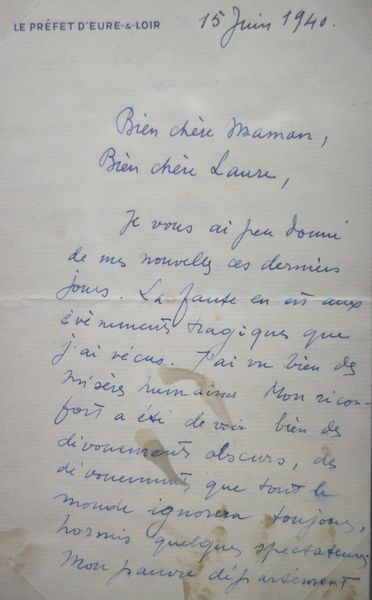 LE PRÉFET D'EURE-&-LOIR
15 Juin 1940.
Bien chère Maman,
Bien chère Laure,
Je vous ai peu donné
de mes nouvelles ces derniers
jours. La faute en est aux
évènements tragiques que
j'ai vécus. J'ai vu bien des
misères humaines. Mon récon-
fort a été de voir bien des
dévouements obscurs, des
dévouements que tout le
monde ignorera toujours,
hormis quelques spectateurs
Mon pauvre département